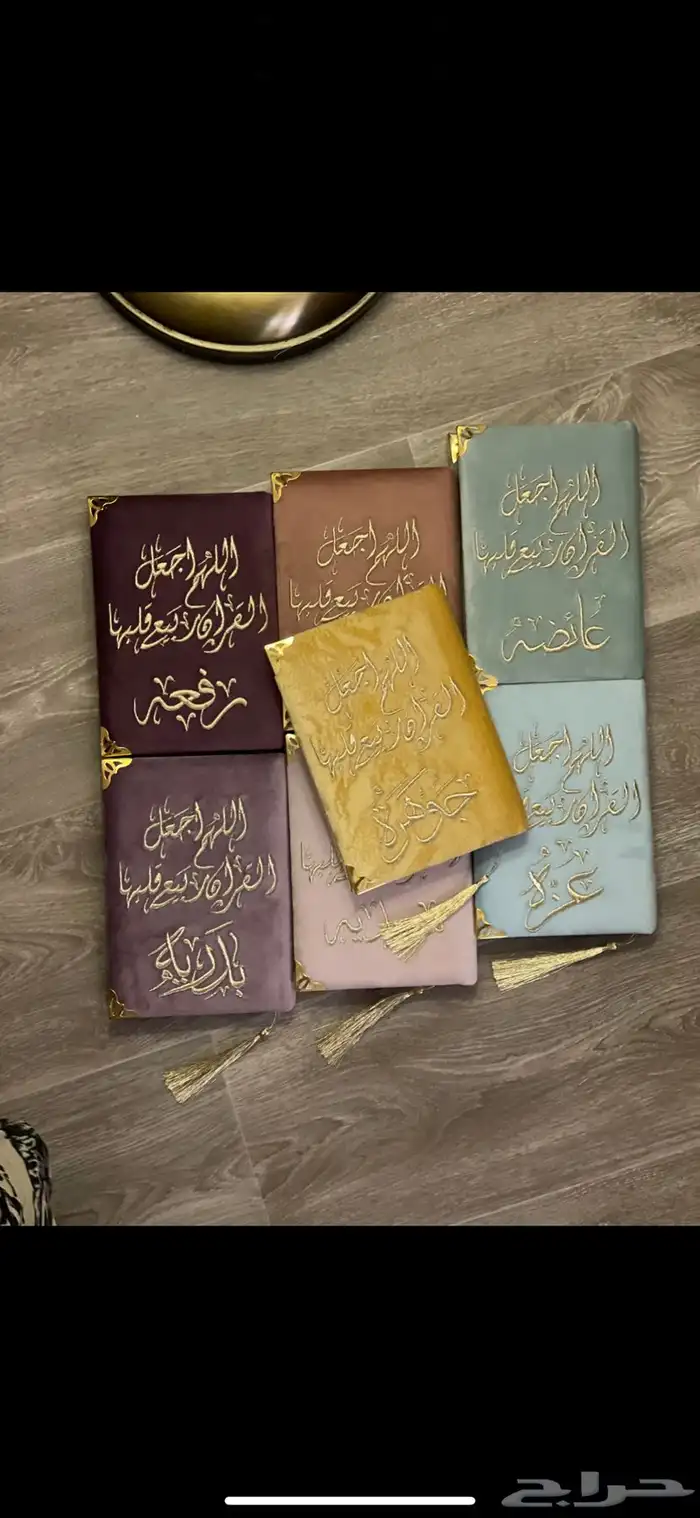 اللهم اجعل
القرآن ربيع قلبها
رفعه
اللهم اجعل
القرآن ربيع قلبها
اللهم اجعل
القرآن ربيع قلبها
عائضه
اللهم اجعل
القرآن ربيع قلبها
جوهرة
اللهم اجعل
القرآن ربيع قلبها
بدريه
ربيع قلبها
اللهم اجعل
القرآن ربيع
عزه
حراج